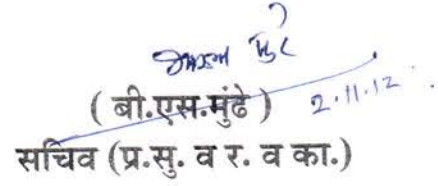 ( बी.एस.मुंढे ) 2.11.12
सचिव (प्र.सु. व र. व का.)